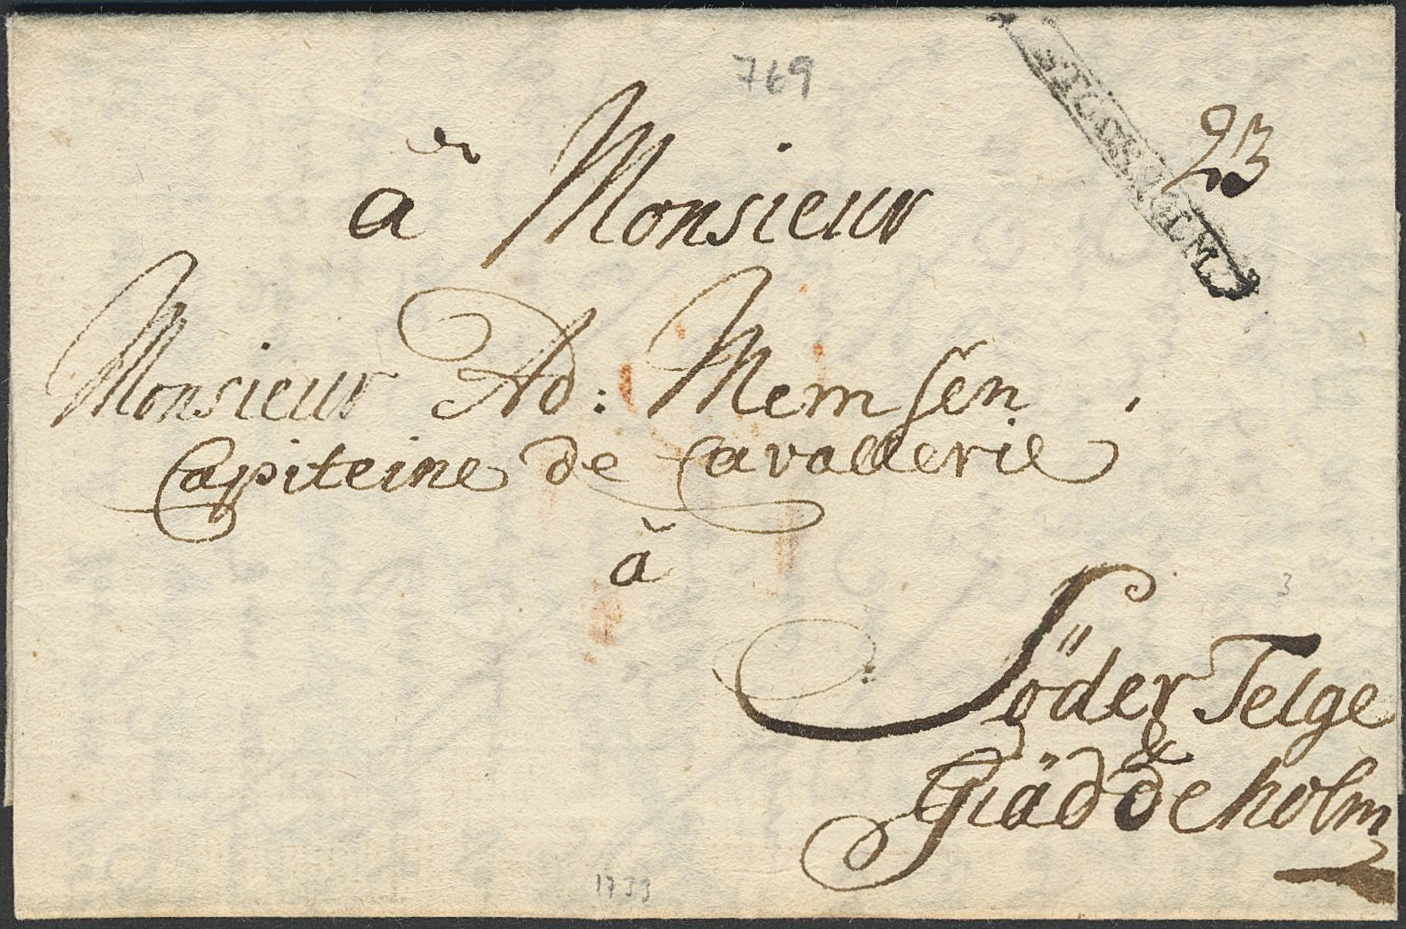 769
STOCKHOLM
23
à Monsieur
Monsieur Ad: Memsen
Capiteine de Cavallerie
à
3
Söder Telge
&
Giäddeholm
1739